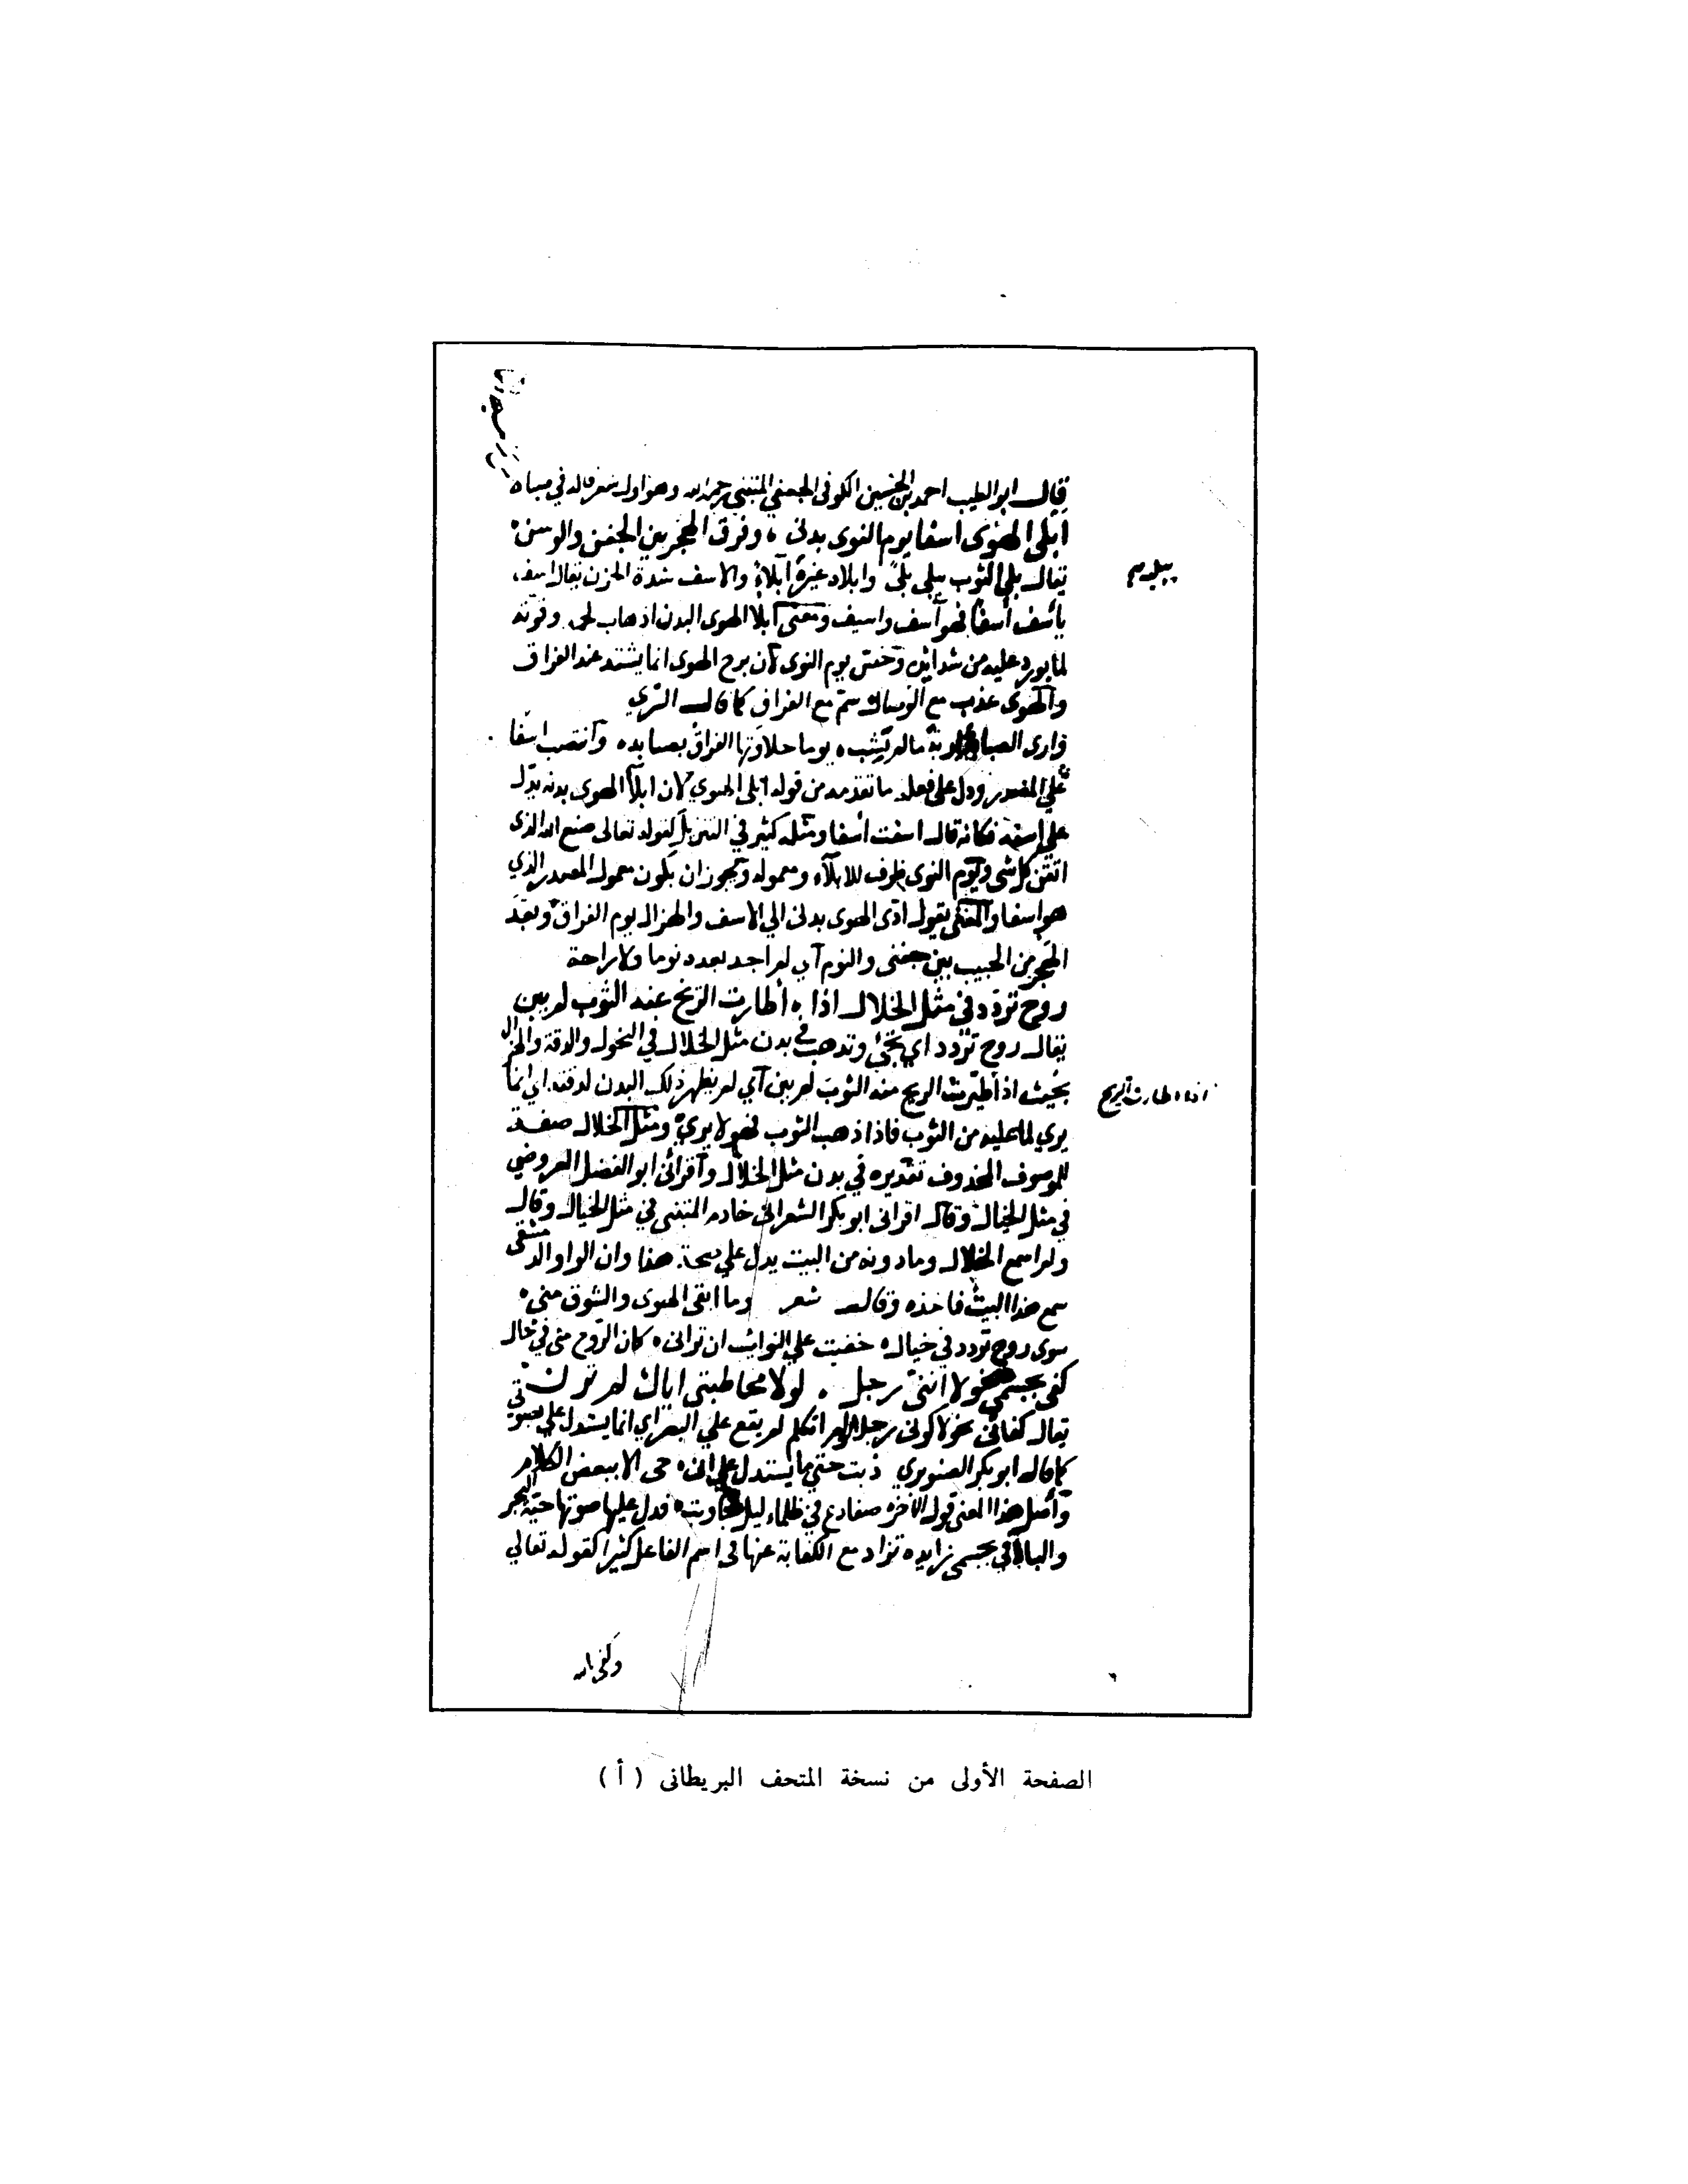 قال ابو الطيب احمد بن الحسين الكوفي الجعفي المتنبي رحمه الله وهو اول شعر قاله في صباه
أبلى الهوى اسفا يوم النوى بدني ، وفرق الهجر بين الجفن والوسن
يقال بلي الثوب يبلى بلىً وابلاه غيره ابلاءً والاسف شدة الحزن يقال اسف
يبليه
يأسف أسفًا فهو آسف واسيف ومعنى ابلا الهوى البدن اذهاب لحمه وقوته
لما يورد عليه من شدايد وخص يوم النوى لان برح الهوى انما يشتد عند الفراق
والهوى عذب مع الوصال سم مع الفراق كما قال السري
وارى الصبابة اربة ما لم يشب ه يوما حلاوتها الفراق بصابه ه وانتصب اسفا
على المصدر ودل على فعله ما تقدمه من قوله ابلى الهوي لان ابلآ الهوى بدنه يدل
على اسفه فكانه قال اسفت أسفا ومثله كثير في التنزيل كقوله تعالى صنع الله الذى
اتقن كل شى ويوم النوى ظرف للابلآء ومعموله ويجوز ان يكون معمول المصدر الذي
هو اسفا والمعنى يقول ادى الهوى بدنى الي الاسف والهزال يوم الفراق وبعد
الهجر من الحبيب بين جفنى والنوم آي لم اجد بعده نوما ولا راحة
روح تردد في مثل الخلال اذا ه أطارت الريح عنه الثوب لم يبن
يقال روح تردد اي تجئ وتذهب في بدن مثل الخلال في النحول والدقة والهزال
بحيث اذ أطيرت الريح عنه الثوب لم يبن آي لم يظهر ذلك البدن لدقته اي انما
اذا اطارت الريح
يري لما عليه من الثوب فاذا ذهب الثوب فهو لا يرى ومثل الخلال صفة
للموصوف المحذوف تقديره في بدن مثل الخلال واقرأنى ابو الفضل العروضي
في مثل الخيال وقال اقرانى ابو بكر الشعرانى خادم المتنبى في مثل الخيال وقال
ولم اسمع الخلال وما دونه من البيت يدل علي صحة هذا وان الواو الدمشقى
سمع هذا البيت فاخذه وقال شعر وما ابقى الهوى والشوق منى ه
سوى روح تردد في خيال ه خفيت على النوائب ان ترانى ه كان الروح منى في محال
كفى بجسمي نحولا اننى رجل . لولا مخاطبتى اياك لم ترن
يقال كفانى نحولا كونى رجلا لو لم اتكلم لم يقع علي البصر اي انما يستدل علي بصوتي
كما قال ابو بكر الصنوبري ذبت حتى ما يستدل علي انى ه حى الا ببعض الكلام
وأصل هذا المعنى قول الاخر ه ضفادع في ظلماء ليل تجاوبت ه فدل عليها صوتها حية البحر
والبا في بجسمى زايده تزاد مع الكفاية عنها فى اسم الفاعل كثيرا كقوله تعالي
وكفى بالله
الصفحة الأولى من نسخة المتحف البريطانى ( أ )